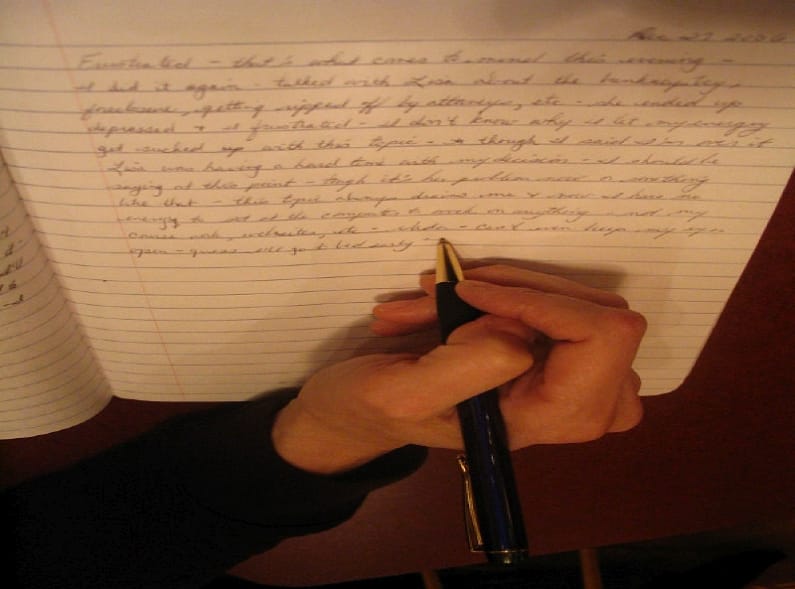 Dec 27 2006
Frustrated - that is what comes to mind this evening -
I did it again - talked with Lisa about the bankruptcy,
foreclosure, getting ripped off by attorneys, etc - she ended up
depressed & I frustrated - I don't know why I let my energy
get sucked up with this topic - though I said I'm over it
Lisa was having a hard time with my decision - I should be
saying at this point - tough it's her problem now or something
like that - this topic always drains me & now I have no
energy to sit at the computer & work on anything - not my
course work, websites, etc - can't even keep my eyes
open - guess I'll go to bed early -